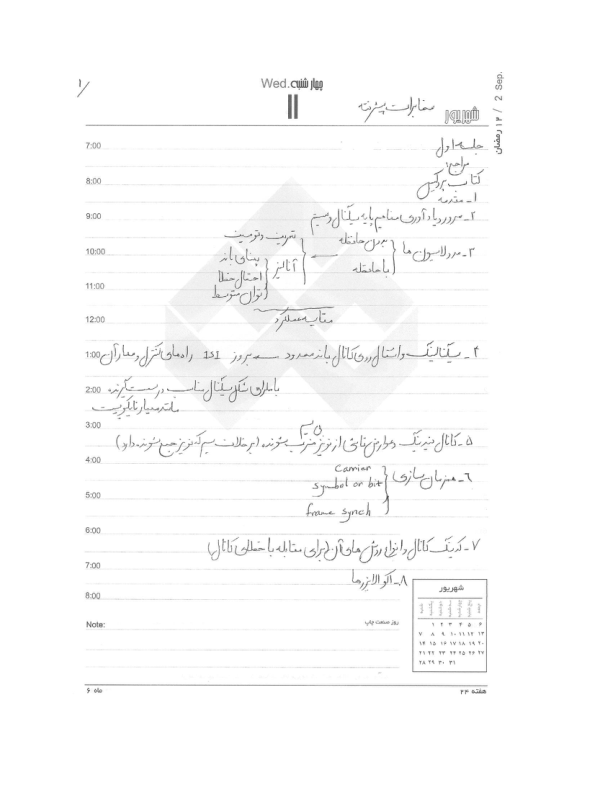 ۱
Wed. چهارشنبه
۱۱
شهریور
مخابرات پیشرفته
۱۲ رمضان / 2 Sep.
7:00
جلسه اول
مراجع:
8:00
کتاب پروکیس
۱- مقدمه
9:00
۲- مرور و یادآوری مفاهیم پایه سیگنال و سیستم
۳- مدولاسیون ها { بدون حافظه
با حافظه
10:00
آنالیز { تعریف و توصیف
پهنای باند
احتمال خطا
11:00
توان متوسط
مقایسه عملکرد
12:00
1:00
۴- سیگنالینگ و انتقال روی کانال باند محدود ← بروز ISI راه های کنترل و مهار آن
2:00
با طراحی شکل سیگنال مناسب در
مانند معیار نایکویست
3:00
۵- کانال فیدینگ و عوارض ناشی از نویز ضرب شونده (بر خلاف سیم که نویز جمع شونده دارد)
بی سیم
4:00
۶- همزمان سازی { Carrier
symbol or bit
5:00
frame synch
6:00
۷- کدینگ کانال و انواع روش های آن (برای مقابله با خطای کانال)
7:00
۸- اکولایزرها
8:00
Note:
روز صنعت چاپ
شهریور
شنبه یکشنبه دوشنبه سه‌شنبه چهارشنبه پنج‌شنبه جمعه
۱ ۲ ۳ ۴ ۵ ۶
۷ ۸ ۹ ۱۰ ۱۱ ۱۲ ۱۳
۱۴ ۱۵ ۱۶ ۱۷ ۱۸ ۱۹ ۲۰
۲۱ ۲۲ ۲۳ ۲۴ ۲۵ ۲۶ ۲۷
۲۸ ۲۹ ۳۰ ۳۱
هفته ۲۴
ماه ۶